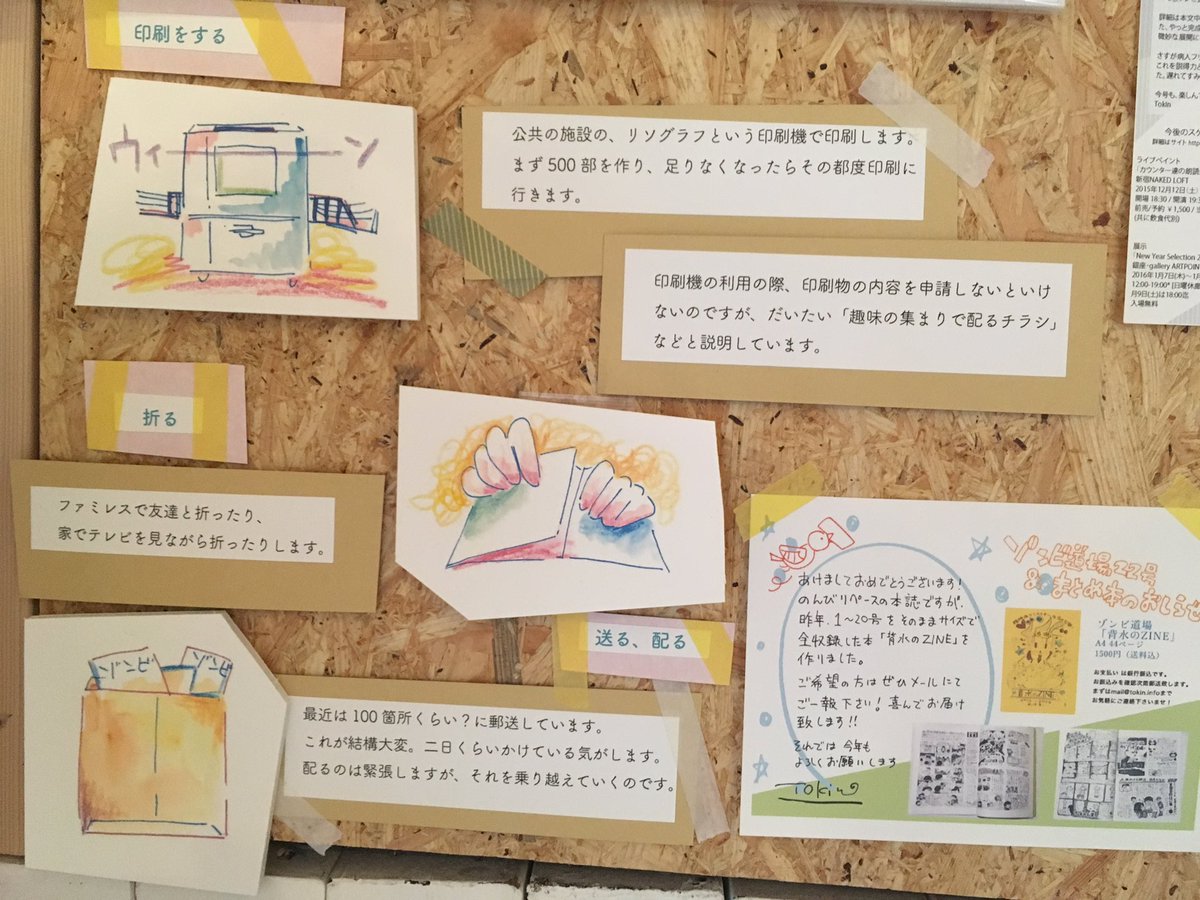 印刷をする
ウィーン
公共の施設の、リソグラフという印刷機で印刷します。
まず500部を作り、足りなくなったらその都度印刷に
行きます。
印刷機の利用の際、印刷物の内容を申請しないといけ
ないのですが、だいたい「趣味の集まりで配るチラシ」
などと説明しています。
折る
ファミレスで友達と折ったり、
家でテレビを見ながら折ったりします。
送る、配る
ゾンビ
ゾンビ
最近は100箇所くらい?に郵送しています。
これが結構大変。二日くらいかけている気がします。
配るのは緊張しますが、それを乗り越えていくのです。
詳細は本文中
た、やっと完成
微妙な展開に
さすが病人フリ
これを説得力と
た。遅れてすみ
今号も、楽しんで
Tokin
今後のスケ
詳細はサイト http
ライブペイント
「カウンター達の朗読
新宿NAKED LOFT
2015年12月12日(土)
開場 18:30 / 開演 19:3
前売/予約 ¥1,500 / 当
(共に飲食代別)
展示
「New Year Selection 2
銀座・gallery ARTPOIN
2016年1月7日(木)〜1月
12:00-19:00* [日曜休廊
月9日(土)は18:00迄
入場無料
ゾンビ道場22号
&まとめ本のおしらせ
あけましておめでとうございます!
のんびりペースの本誌ですが、
昨年、1〜20号をそのままサイズで
全収録した本「背水のZINE」を
作りました。
ご希望の方はぜひメールにて
ご一報下さい!喜んでお届け
致します!!
それでは今年も
よろしくお願いします
Tokin
ゾンビ道場
「背水のZINE」
A4 44ページ
1500円(送料込)
お支払い は銀行振込です。
お振込みを確認次第郵送致します。
まずはmail@tokin.infoまで
お気軽にご連絡下さいませ!
背水のZINE